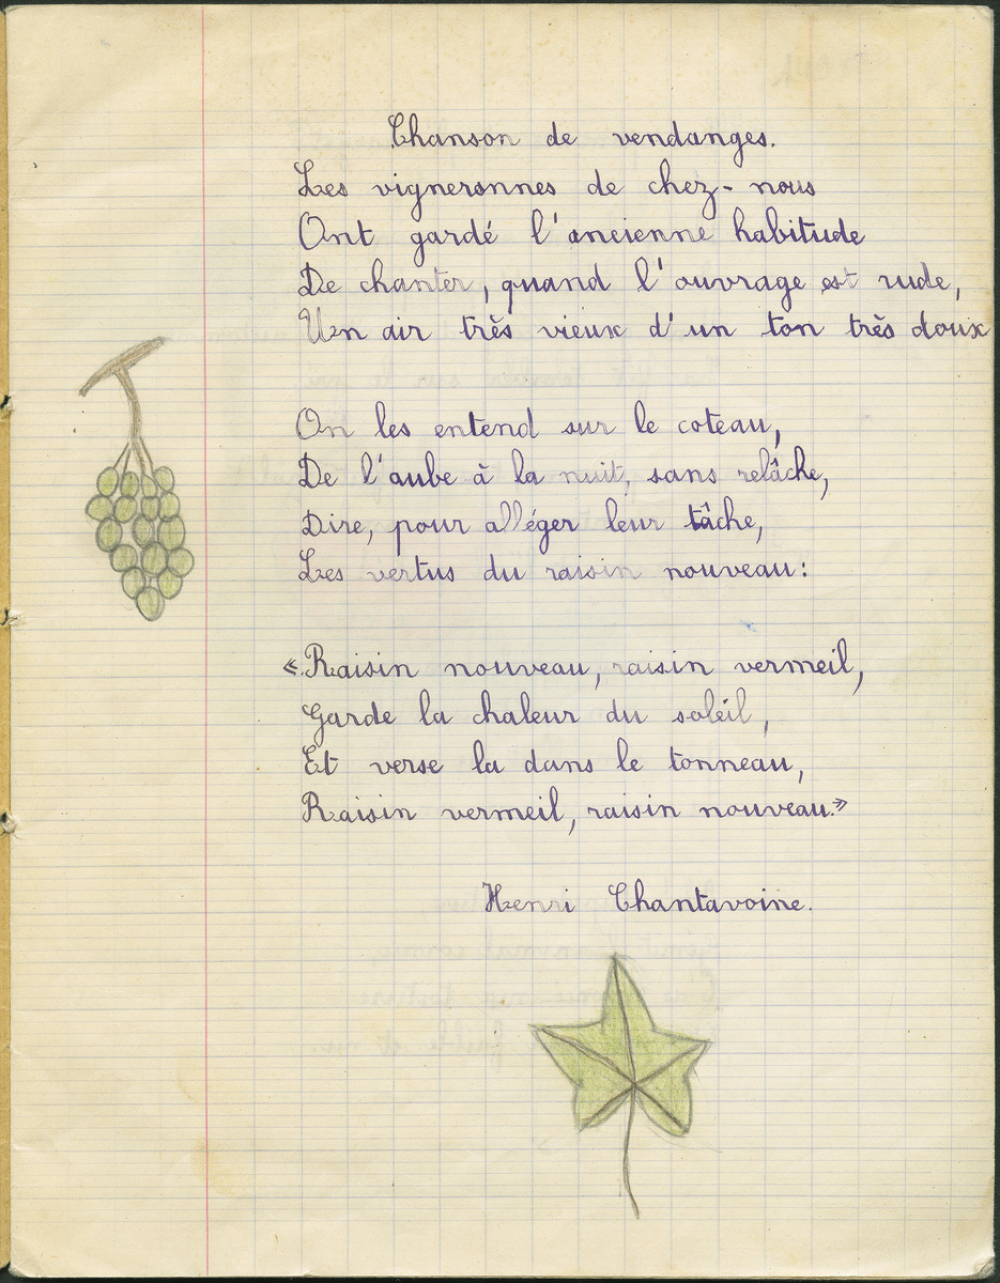 Chanson de vendanges.
Les vigneronnes de chez-nous
Ont gardé l'ancienne habitude
De chanter, quand l'ouvrage est rude,
Un air très vieux d'un ton très doux
On les entend sur le coteau,
De l'aube à la nuit, sans relâche,
Dire, pour alléger leur tâche,
Les vertus du raisin nouveau:
«Raisin nouveau, raisin vermeil,
Garde la chaleur du soleil,
Et verse la dans le tonneau,
Raisin vermeil, raisin nouveau.»
Henri Chantavoine.